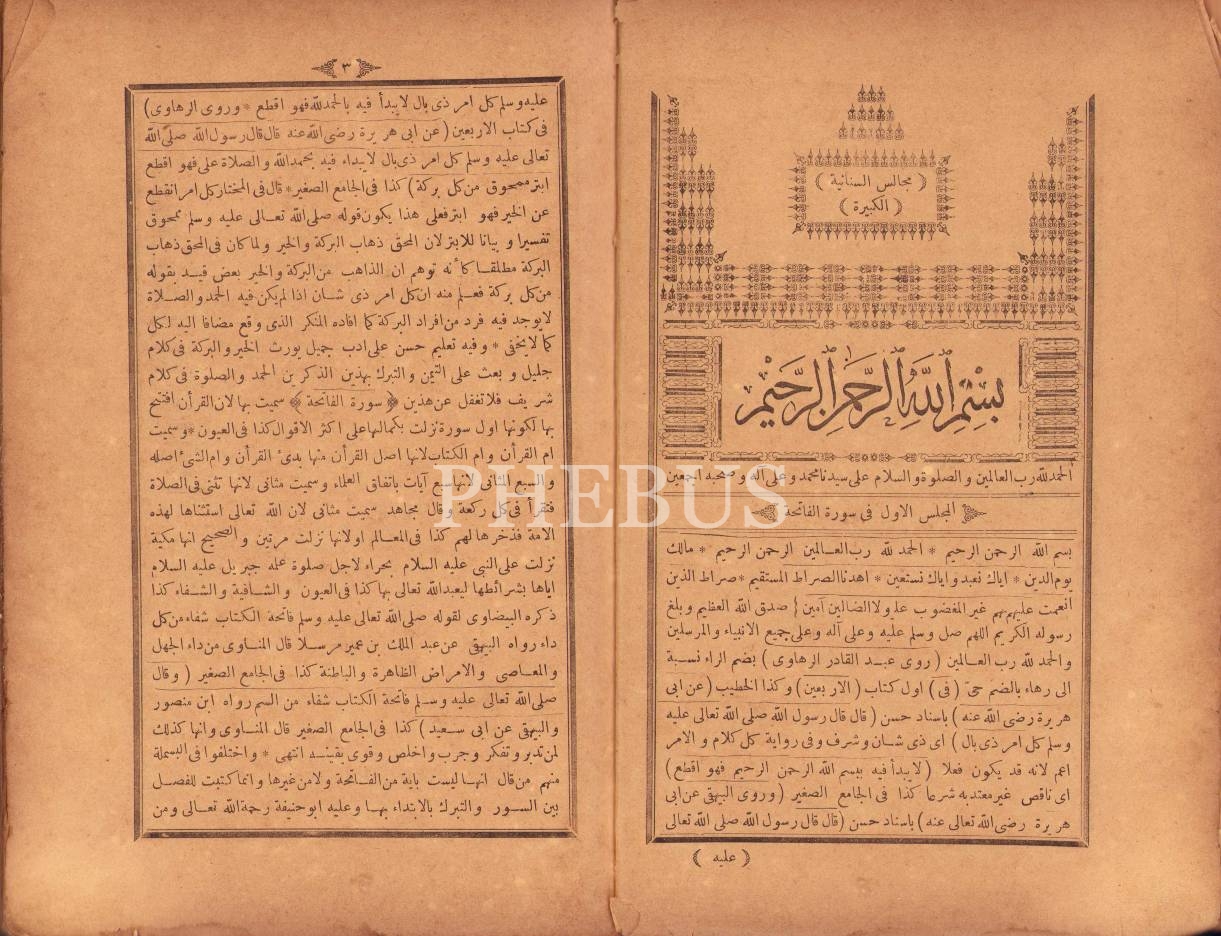 ( مجالس السنانية )
( الكبيرة )
بسم الله الرحمن الرحيم
الحمد لله رب العالمين والصلوة والسلام على سيدنا محمد وعلى آله وصحبه اجمعين
المجلس الاول فى سورة الفاتحة
بسم الله الرحمن الرحيم * الحمد لله رب العالمين الرحمن الرحيم * مالك
يوم الدين * اياك نعبد واياك نستعين * اهدنا الصراط المستقيم * صراط الذين
انعمت عليهم غير المغضوب عليهم ولا الضالين آمين } صدق الله العظيم وبلغ
رسوله الكريم اللهم صل وسلم عليه وعلى آله وعلى جميع الانبياء والمرسلين
والحمد لله رب العالمين ( روى عبد القادر الرهاوى ) بضم الراء نسبة
الى رهاء بالضم حى ( فى ) اول كتاب ( الاربعين ) وكذا الخطيب ( عن ابى
هريرة رضى الله عنه ) باسناد حسن ( قال قال رسول الله صلى الله تعالى عليه
وسلم كل امر ذى بال ) اى ذى شان وشرف وفى رواية كل كلام والامر
اعم لانه قد يكون فعلا ( لا يبدأ فيه ببسم الله الرحمن الرحيم فهو اقطع )
اى ناقص غير معتد به شرعا كذا فى الجامع الصغير ( وروى البيهقى عن ابى
هريرة رضى الله تعالى عنه ) باسناد حسن ( قال قال رسول الله صلى الله تعالى
( عليه )
٣
عليه وسلم كل امر ذى بال لا يبدأ فيه بالحمد لله فهو اقطع * وروى الرهاوى )
فى كتاب الاربعين ( عن ابى هريرة رضى الله عنه قال قال رسول الله صلى الله
تعالى عليه وسلم كل امر ذى بال لا يبداء فيه بحمد الله والصلاة على فهو اقطع
ابتر ممحوق من كل بركة ) كذا فى الجامع الصغير * قال فى المختار كل امر انقطع
عن الخير فهو ابتر فعلى هذا يكون قوله صلى الله تعالى عليه وسلم ممحوق
تفسيرا وبيانا للابتر لان المحق ذهاب البركة والخير ولما كان فى المحق ذهاب
البركة مطلقا كأنه توهم ان الذاهب من البركة والخير بعض قيد بقوله
من كل بركة فعلم منه ان كل امر ذى شان اذا لم يكن فيه الحمد والصلاة
لا يوجد فيه فرد من افراد البركة كما افاده المنكر الذى وقع مضافا اليه لكل
كما لا يخفى * وفيه تعليم حسن على ادب جميل يورث الخير والبركة فى كلام
جليل وبعث على التيمن والتبرك بهذين الذكرين الحمد والصلوة فى كلام
شريف فلا تغفل عن هذين ﴿ سورة الفاتحة ﴾ سميت بها لان القرأن افتتح
بها لكونها اول سورة نزلت بكمالها على اكثر الاقوال كذا فى العيون * وسميت
ام القرأن وام الكتاب لانها اصل القرأن منها بدئ القرأن وام الشئ اصله
والسبع المثانى لانها سبع آيات باتفاق العلماء وسميت مثانى لانها تثنى فى الصلاة
فتقرأ فى كل ركعة وقال مجاهد سميت مثانى لان الله تعالى استثناها لهذه
الامة فذخرها لهم كذا فى المعالم او لانها نزلت مرتين والصحيح انها مكية
نزلت على النبى عليه السلام بحراء لاجل صلوة علمه جبريل عليه السلام
اياها بشرائطها ليعبد الله تعالى بها كذا فى العيون والشافية والشفاء كذا
ذكره البيضاوى لقوله صلى الله تعالى عليه وسلم فاتحة الكتاب شفاء من كل
داء رواه البيهقى عن عبد الملك بن عمير مرسلا قال المناوى من داء الجهل
والمعاصى والامراض الظاهرة والباطنة كذا فى الجامع الصغير ( وقال
صلى الله تعالى عليه وسلم فاتحة الكتاب شفاء من السم رواه ابن منصور
والبيهقى عن ابى سعيد ) كذا فى الجامع الصغير قال المناوى وانها كذلك
لمن تدبر وتفكر وجرب واخلص وقوى يقينه انتهى * واختلفوا فى البسملة
منهم من قال انها ليست باية من الفاتحة ولا من غيرها وانما كتبت للفصل
بين السور والتبرك بالابتداء بها وعليه ابو حنيفة رحمة الله تعالى ومن
PHEBUS